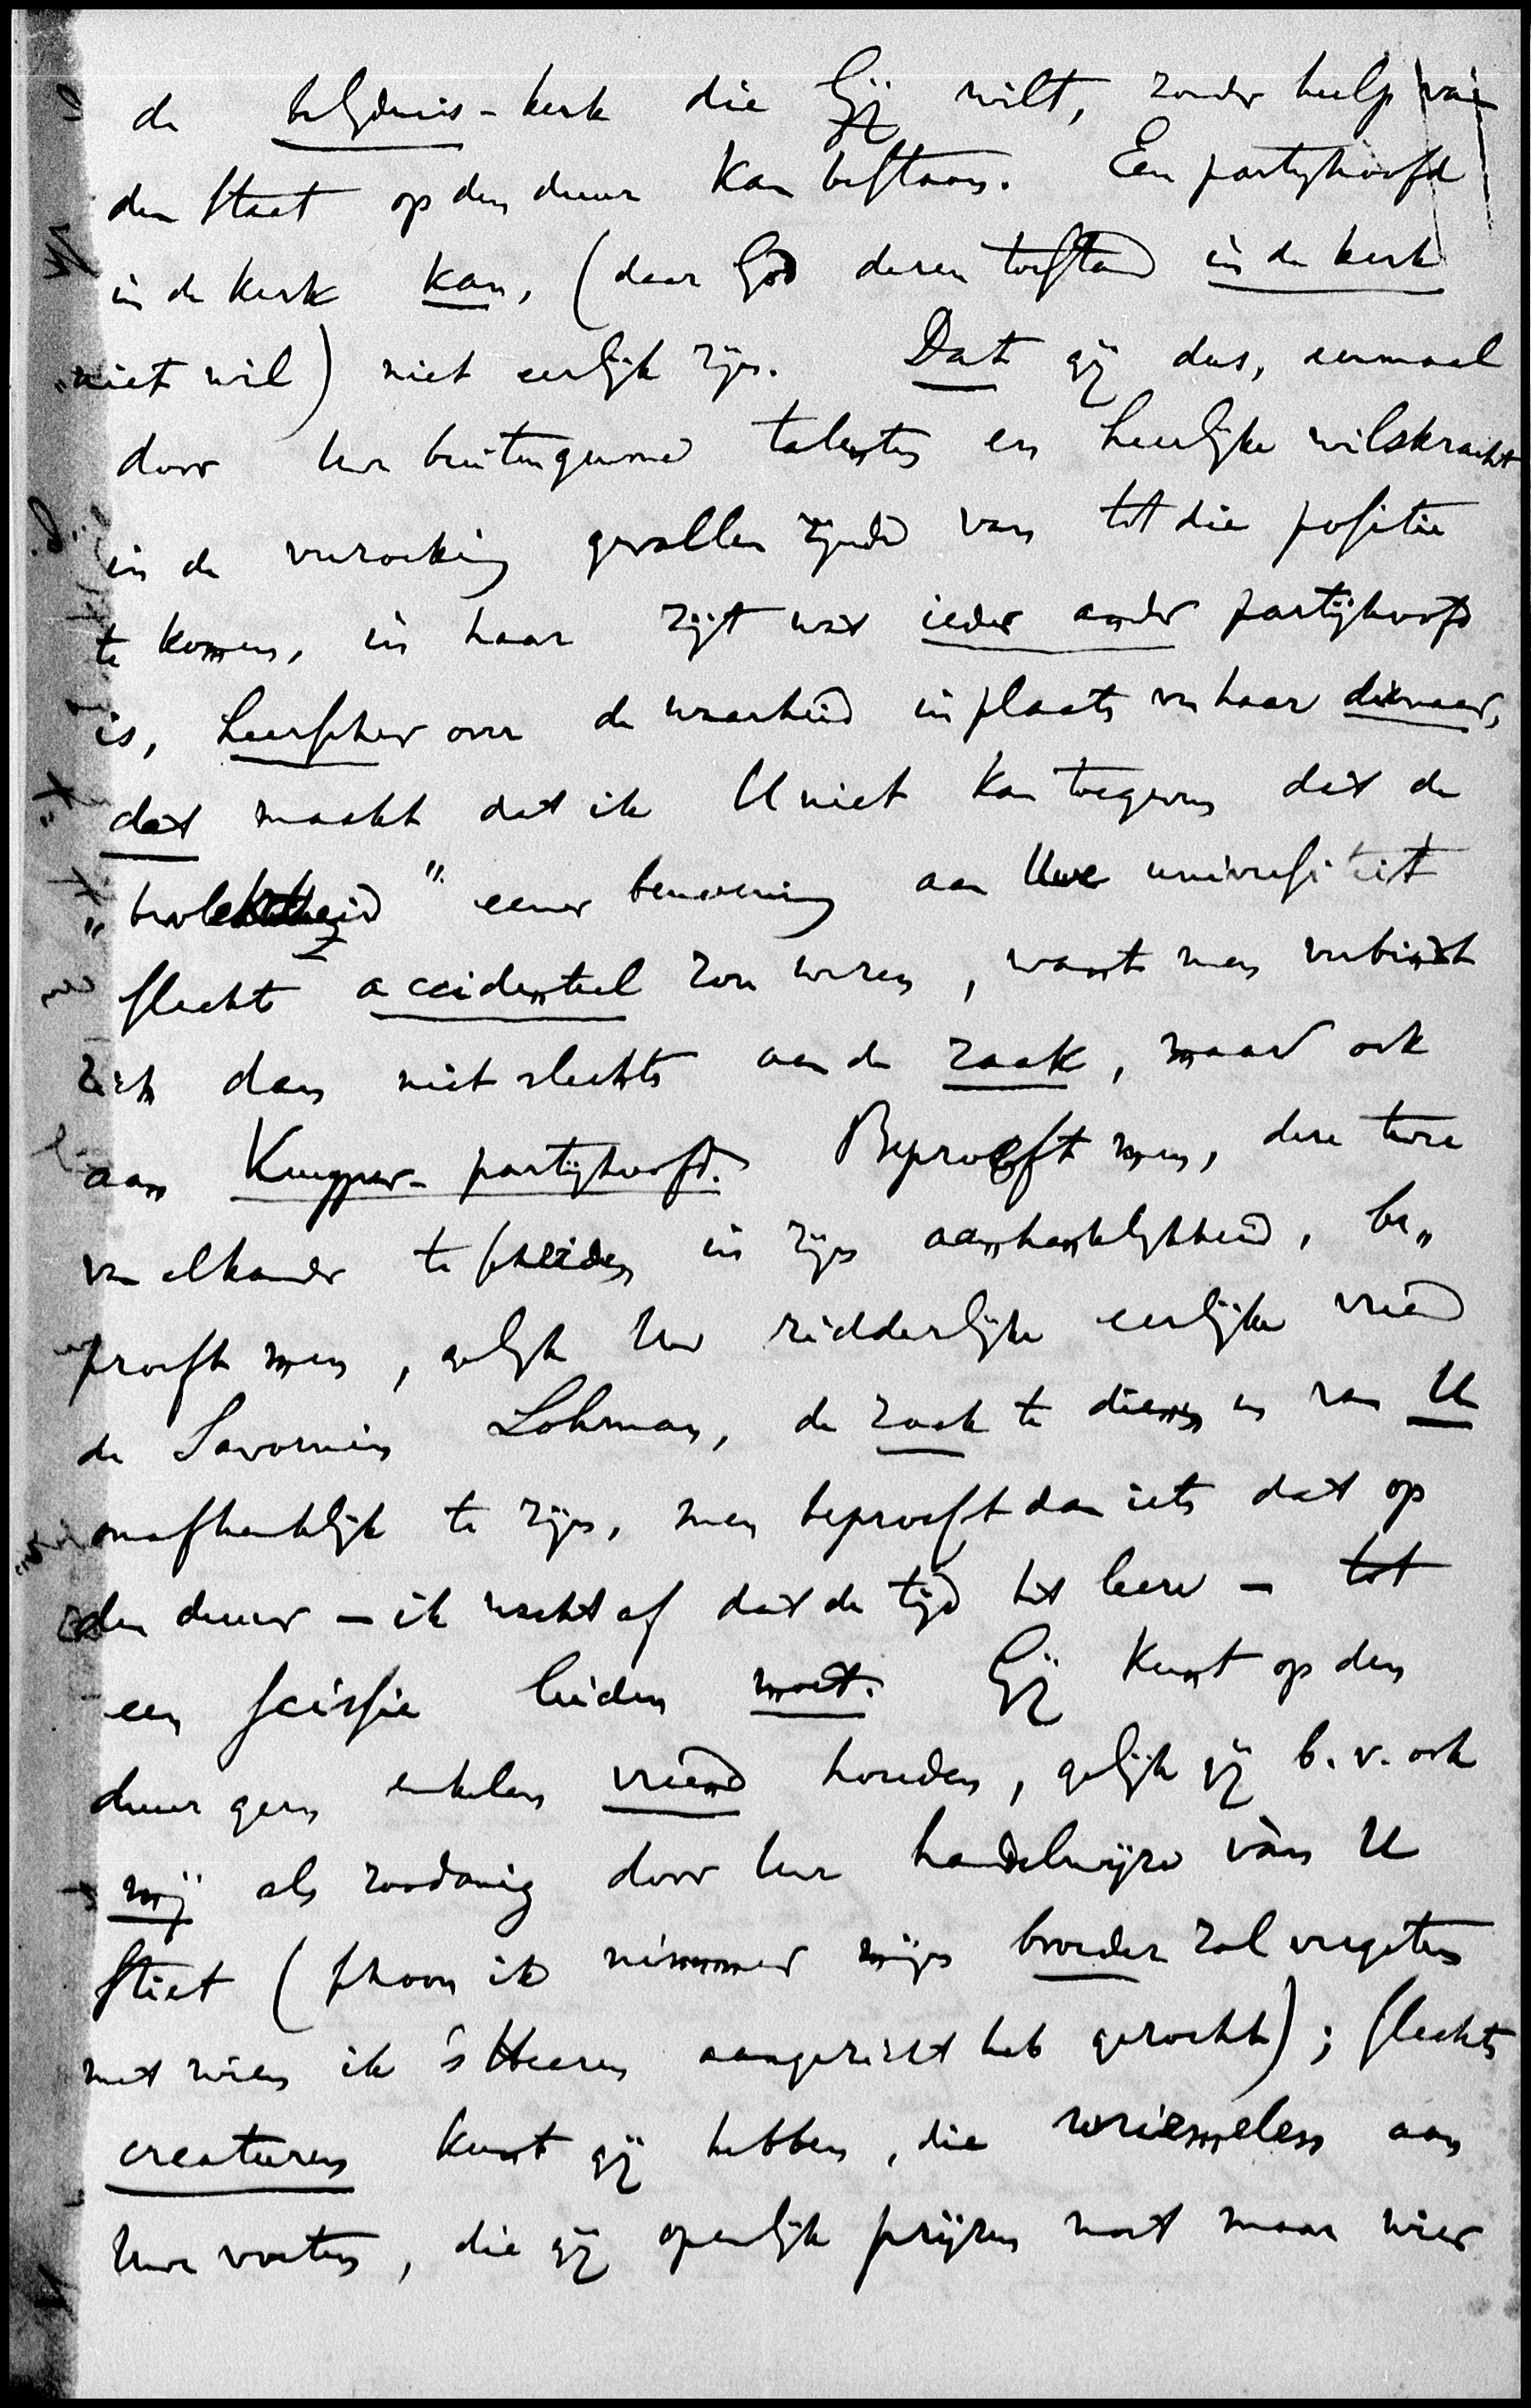 de belijdenis-kerk die Gij wilt, zonder hulp van
den Staat op den duur kan bestaan. Een partijhoofd
in de kerk kan, (daar God deren toestand in de kerk
niet wil) niet eerlijk zijn. Dat gij dus, eenmaal
door Uw buitengewone talenten en heerlijke wilskracht
in de verzoeking gevallen zijnde van tot die positie
te komen, in haar zijt wat ieder ander partijhoofd
is, heerscher over de waarheid in plaats van haar dienaar,
dat maakt dat ik U niet kan toegeven dat de
eener benoeming aan Uwe universiteit
slecht accidenteel zou wezen, want men verbindt
zich dan niet slechts aan de zaak, maar ook
aan Kuyper-partijhoofd. Beproeft men, deze twee
van elkander te scheiden in zijn aanhankelijkheid, be„
proeft men, gelijk Uw ridderlijke eerlijke vriend
de Savornin Lohman, de zaak te dienen en van U
onafhankelijk te zijn, men beproeft dan iets dat op
den duur - ik wacht af dat de tijd het leere - tot
een scissie leiden moet. Gij kunt op den
duur geen enkelen vriend houden, gelijk gij b.v. ook
mij als zoodanig door Uw handelwijze van U
stiet (schoon ik nimmer mijn broeder zal vergeten
met wien ik 's Heeren aangezicht heb gezocht); slechts
creaturen kunt gij hebben, die wriemelen aan
Uwe voeten, die gij openlijk prijzen moet maar wier